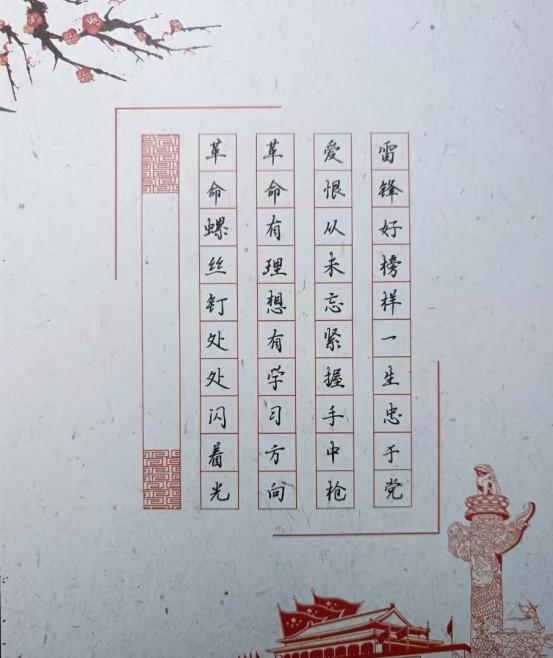 雷锋好榜样一生忠于党
爱恨从未忘紧握手中枪
革命有理想有学习方向
革命螺丝钉处处闪着光